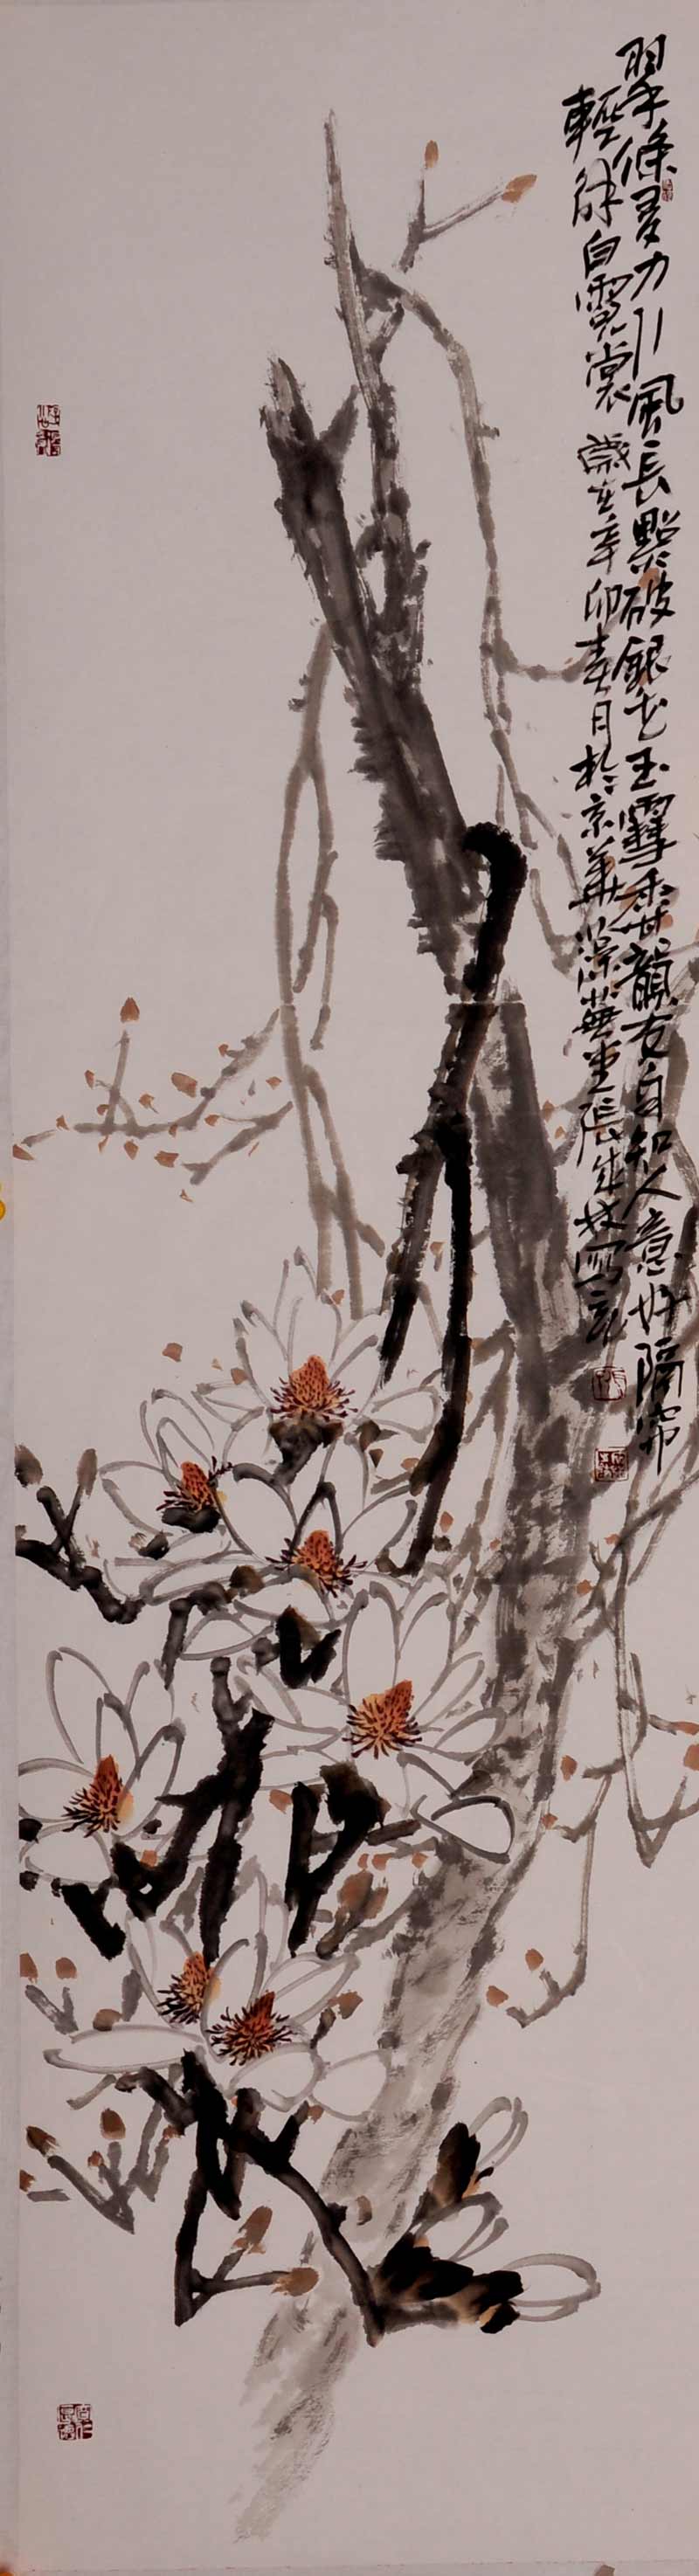 翠條多力引風長點破銀花玉雪香韻友自知人意好隔簾
輕解白霓裳 歲在辛卯春月於京華藻蕪堂張生枝寫意